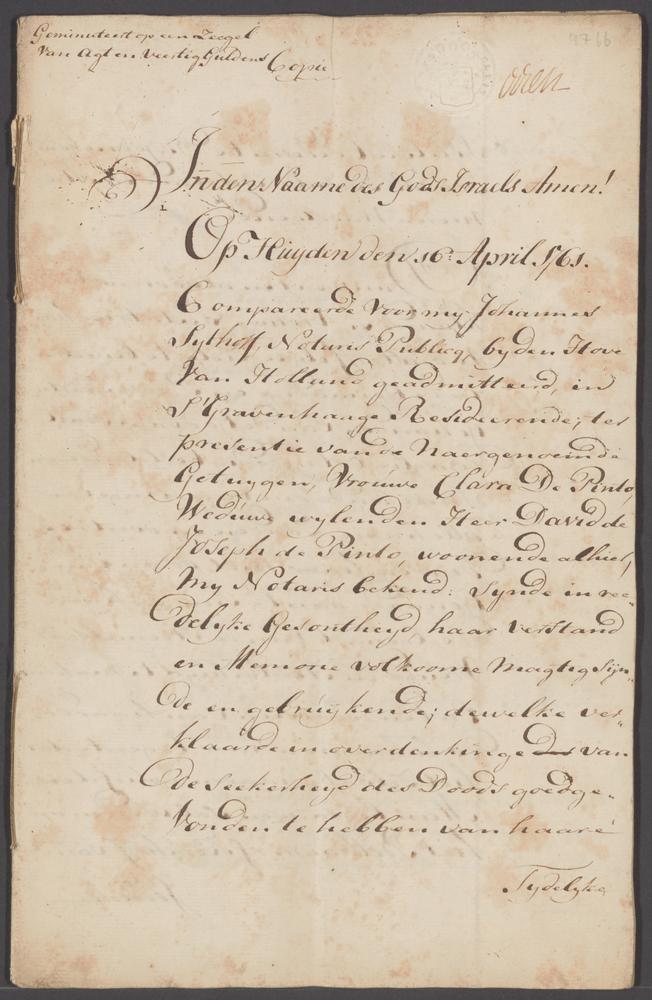 Geminuteert op een Zeegel
van Agt en veertig Guldens
Copie
4766
In den Naame des Gods Israels Amen!
Op Huyden den 16: April 1761.
Compareerde voor my Johannes
Sythoff, Notaris Publicq, by den Hove
van Holland geadmitteerd, in
S'Gravenhaage Resideerende; ter
presentie van de Naergenoemde
Getuygen, Vrouwe Clara De Pinto,
Weduwe wylen den Heer David de
Joseph de Pinto, woonende alhier,
my Notaris bekend: synde in ree-
delyke Gesontheyd, haar verstand
en Memorie volkoome magtig Sÿn-
de en gebruykende; dewelke ver-
klaarde in overdenkinge van
de seekerheyd des Doods goedge-
vonden te hebben van haare
Tydelyke